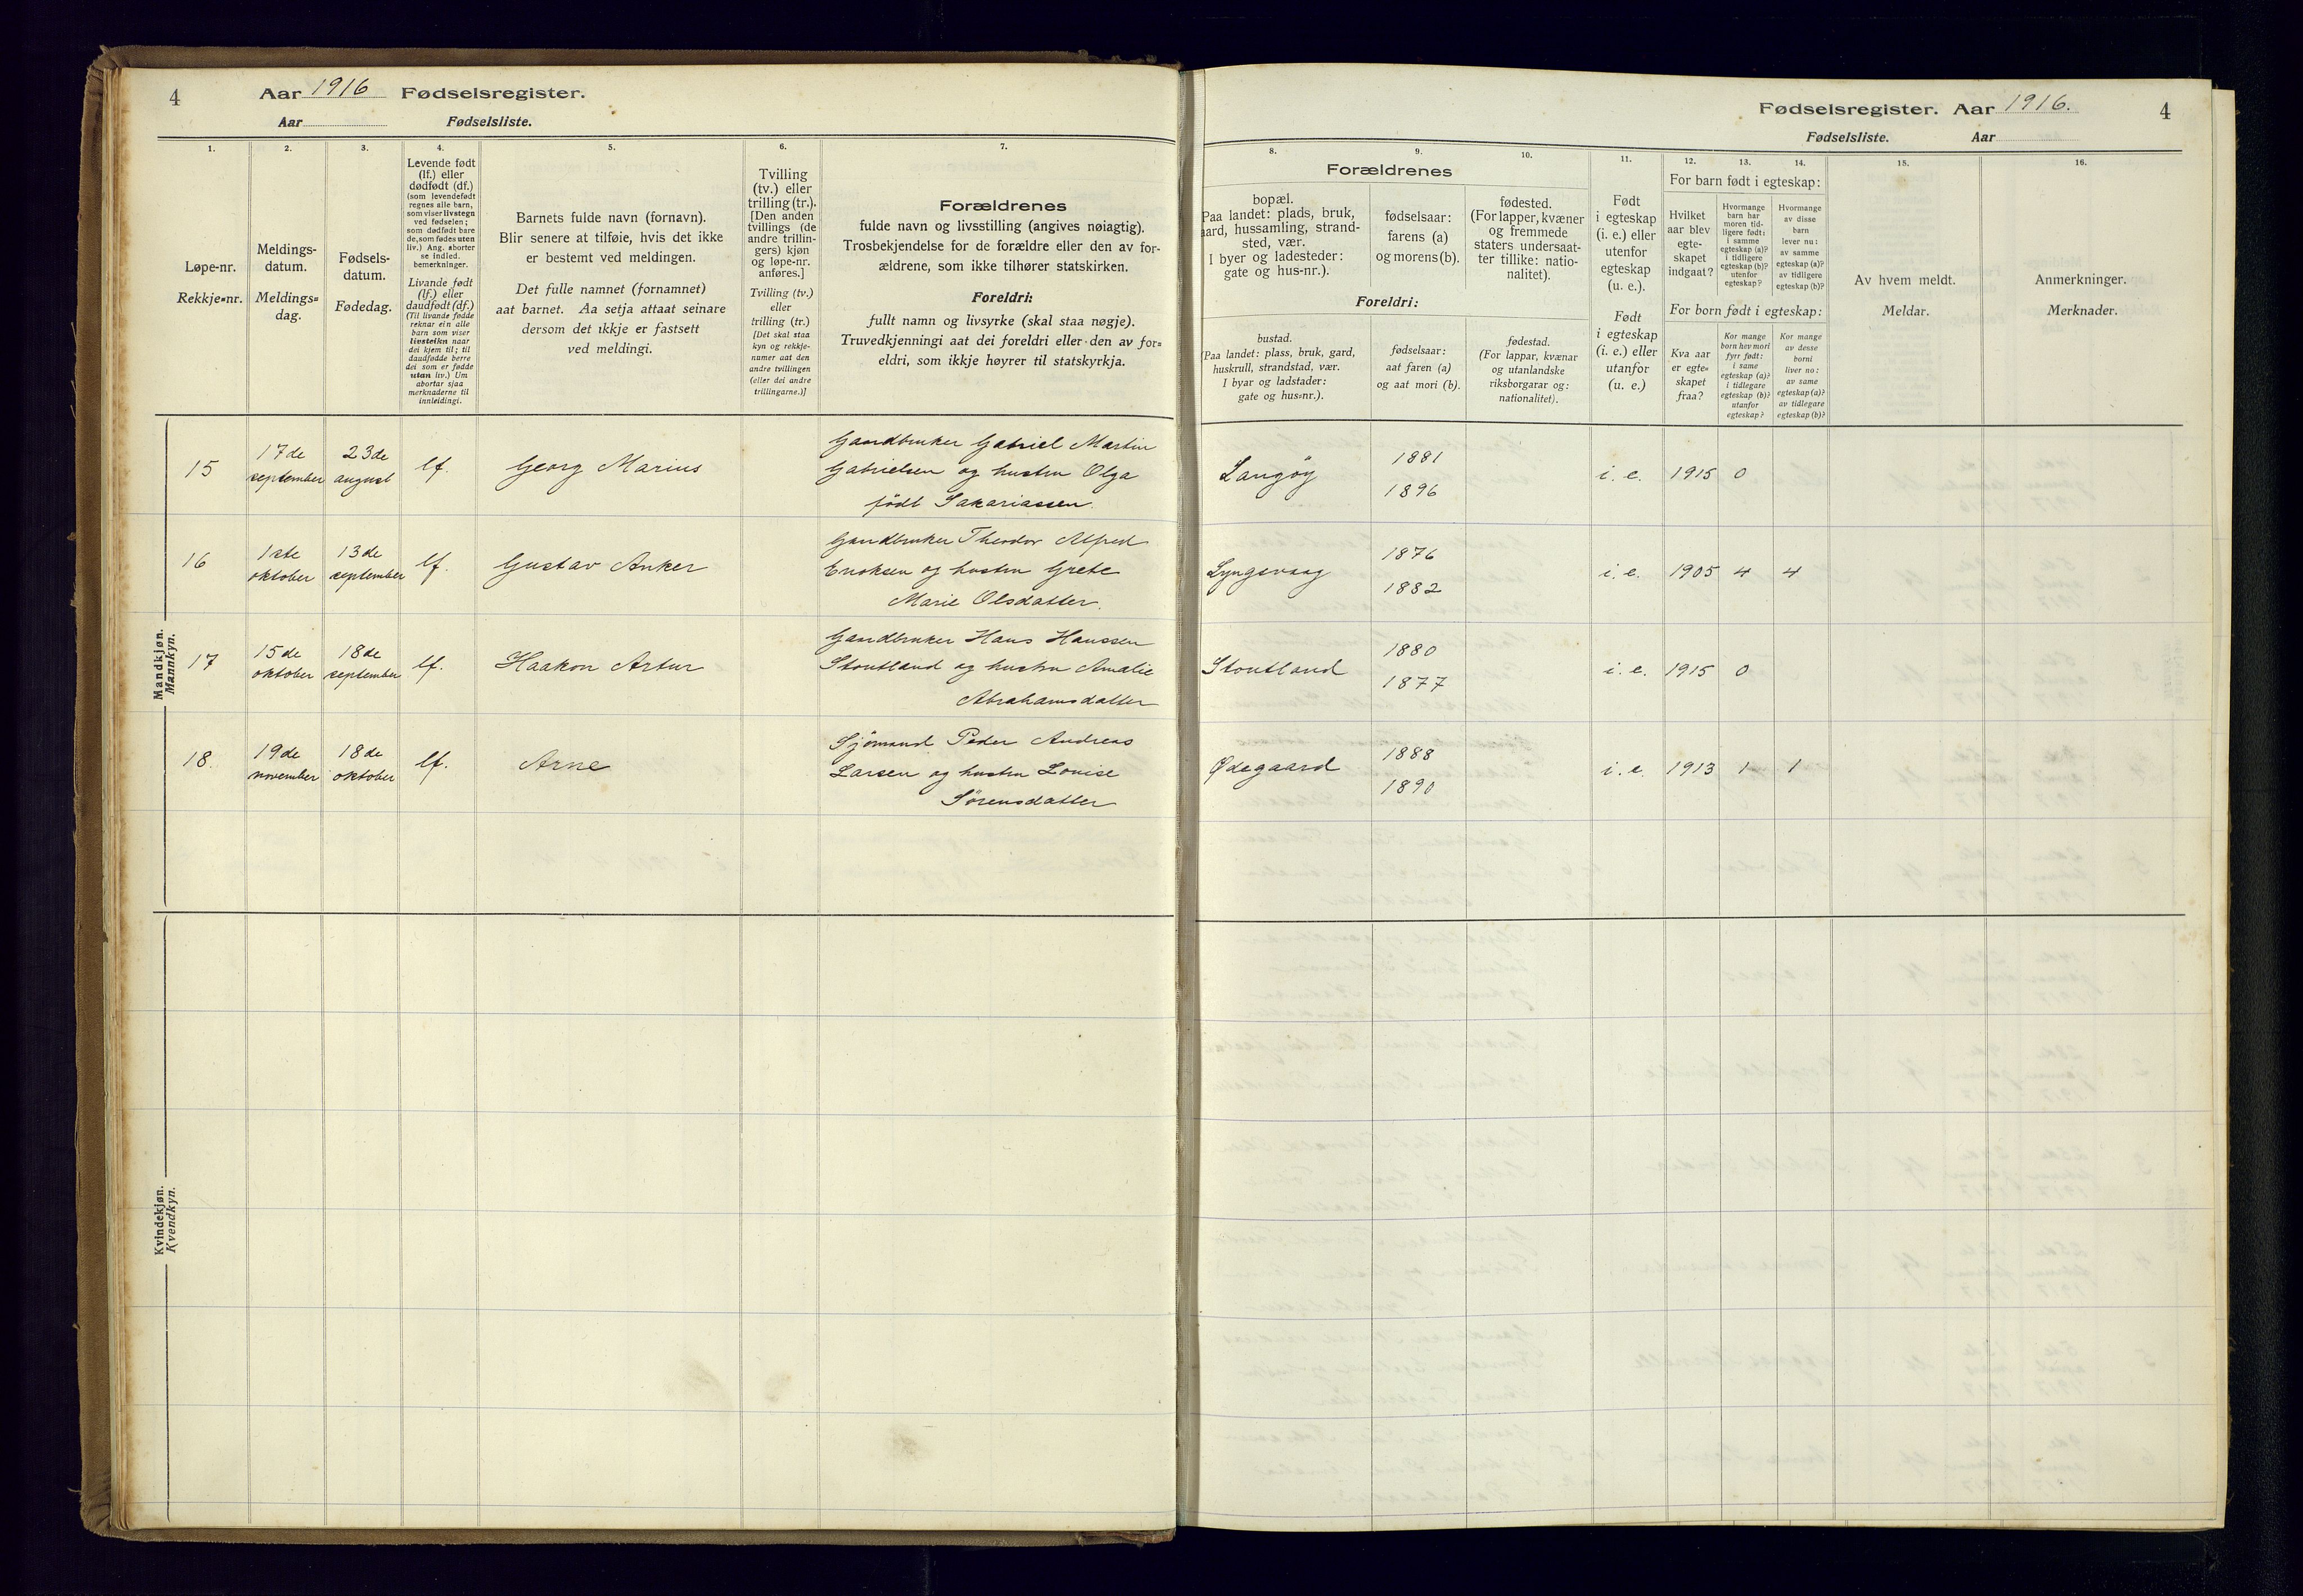 4
Aar 1916 Fødselsregister.
Aar Fødselsliste.
1.
Løpe-nr.
Rekkje=nr.
2.
Meldings-
datum.
Meldings=
dag.
3.
Fødsels-
datum.
Fødedag.
4.
Levende født
(lf.) eller
dødfødt (df.)
(som levendefødt
regnes alle barn,
som viser livstegn
ved fødselen;
som dødfødt bare
de, som fødes uten
liv.) Ang. aborter
se indled.
bemerkninger.
Livande født
(lf.) eller
daudfødt (df.)
(Til livande fødde
reknar ein alle
barn som viser
livsteikn naar
dei kjem til; til
daudfødde berre
dei som er fødde
utan liv.) Um
abortar sjaa
merknaderne til
innleidingi.
5.
Barnets fulde navn (fornavn).
Blir senere at tilføie, hvis det ikke
er bestemt ved meldingen.
Det fulle namnet (fornamnet)
aat barnet. Aa setja attaat seinare
dersom det ikkje er fastsett
ved meldingi.
6.
Tvilling
(tv.) eller
trilling (tr.).
[Den anden
tvillings (de
andre trillin-
gers) kjøn
og løpe-nr.
anføres.]
Tvilling (tv.)
eller
trilling (tr.)
[Det skal staa
kyn og rekkje-
numer aat den
andre tvillingen
(eller dei andre
trillingarne.)]
7.
Forældrenes
fulde navn og livsstilling (angives nøiagtig).
Trosbekjendelse for de forældre eller den av for-
ældrene, som ikke tilhører statskirken.
Foreldri:
fullt namn og livsyrke (skal staa nøgje).
Truvedkjenningi aat dei foreldri eller den av for=
eldri, som ikkje høyrer til statskyrkja.
Mandkjøn.
Mannkyn.
15
17de
september
23de
august
lf.
Georg Marius
Gaardbruker Gabriel Martin
Gabrielsen og hustru Olga
født Sakariassen.
16
1ste
oktober
13de
september
lf.
Gustav Anker
Gaardbruker Theodor Alfred
Enoksen og hustru Grete
Marie Olsdatter.
17
15de
oktober
18de
september
lf.
Haakon Artur
Gaardbruker Hans Hanssen
Stoutland og hustru Amalie
Abrahamsdatter
18.
19de
november
18de
oktober
lf.
Arne
Sjømand Peder Andreas
Larsen og hustru Lovise
Sørensdatter
Kvindekjøn.
Kvendkyn.
Fødselsregister. Aar 1916.
4
Fødselsliste. Aar
8.
Forældrenes
bopæl.
Paa landet: plads, bruk,
aard, hussamling, strand-
sted, vær.
I byer og ladesteder:
gate og hus-nr.).
Foreldri:
bustad.
(Paa landet: plass, bruk, gard,
huskrull, strandstad, vær.
I byar og ladstader:
gate og hus=nr.).
9.
fødselsaar:
farens (a)
og morens (b).
fødselsaar:
aat faren (a)
og aat mori (b).
10.
fødested.
(For lapper, kvæner
og fremmede
staters undersaat-
ter tillike: natio-
nalitet).
fødestad.
(For lappar, kvænar
og utanlandske
riksborgarar og:
nationalitet).
11.
Født
i egteskap
(i. e.) eller
utenfor
egteskap
(u. e.).
Født
i egteskap
(i. e.) eller
utanfor
(u. e.)
12.
13.
14.
For barn født i egteskap:
Hvilket
aar blev
egte-
skapet
indgaat?
Hvormange
barn har
moren tid-
ligere født:
i samme
egteskap (a)?
i tidligere
egteskap (b)?
utenfor
egteskap?
Hvormange
av disse
barn
lever nu:
av samme
egteskap (a)?
av tidligere
egteskap (b)?
For born født i egteskap:
Kva aar
er egte=
skapet
fraa?
Kor mange
born hev mori
fyrr født:
i same
egteskap (a)?
i tidlegare
egteskap (b)?
utanfor
egteskap?
Kor mange
av desse
borni
liver no:
av same
egteskap (a)?
av tidlegare
egteskap (b)?
15.
Av hvem meldt.
Meldar.
16.
Anmerkninger.
Merknader.
Langöy
1881
1896
i. e. 1915 0
Lyngsvaag
1876
1882
i. e. 1905 4 4
Stoutland
1880
1877
i. e. 1915 0
Ødegaard
1888
1890
i. e. 1913 1 1